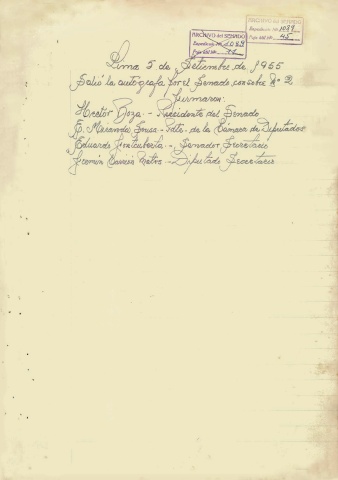 ARCHIVO del SENADO
Expediente Nº 1089
Foja útil Nº 45
ARCHIVO del SENADO
Foja útil Nº
Lima 5 de Setiembre de 1955
Salió la autógrafa por el Senado, con sobre Nº 2
Firmaron:
Héctor Boza. - Presidente del Senado
E. Miranda Sousa - Pdte. de la Cámara de Diputados
Eduardo - Senador Secretario
Fermín Carrión Matos - Diputado Secretario